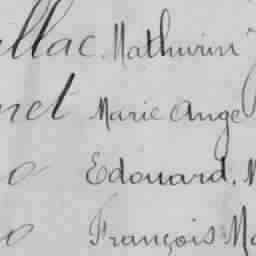 llac Mathurin
net Marie Ange
o Edouard, M
o François Ma